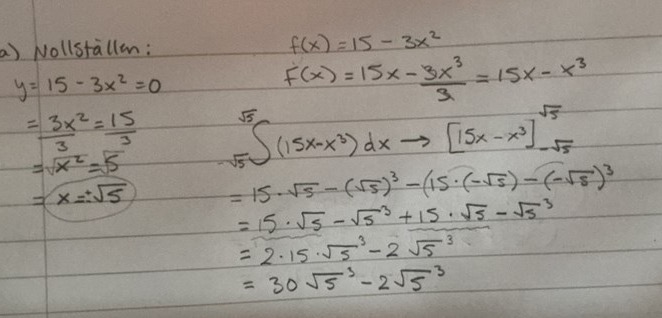 a) Nollställen:
y = 15 - 3x² = 0
= 3x²/3 = 15/3
= √x² = √5
= x = ±√5
f(x) = 15 - 3x²
F(x) = 15x - 3x³/3 = 15x - x³
∫_{-√5}^{√5} (15x - x³) dx → [15x - x³]_{-√5}^{√5}
= 15 · √5 - (√5)³ - (15 · (-√5) - (-√5)³
= 15 · √5 - √5³ + 15 · √5 - √5³
= 2 · 15 · √5³ - 2√5³
= 30√5³ - 2√5³